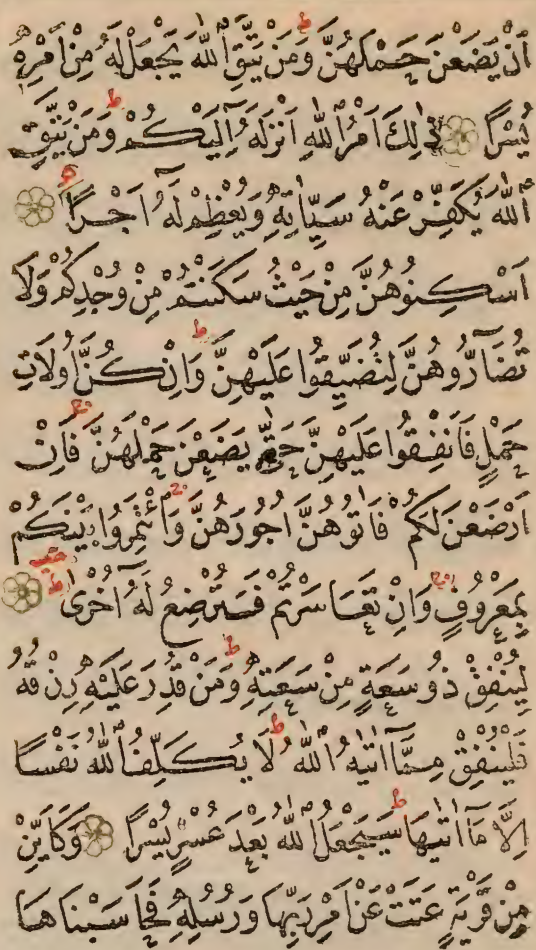 اَنْ يَضَعْنَ حَمْلَهُنَّ ط وَمَنْ يَتَّقِ اللّٰهَ يَجْعَلْ لَهُ مِنْ اَمْرِهِ
يُسْرًا ذٰلِكَ اَمْرُ اللّٰهِ اَنْزَلَهُٓ اِلَيْكُمْ ط وَمَنْ يَتَّقِ
اللّٰهَ يُكَفِّرْ عَنْهُ سَيِّاٰتِهِ وَيُعْظِمْ لَهُٓ اَجْرًا
اَسْكِنُوهُنَّ مِنْ حَيْثُ سَكَنْتُمْ مِنْ وُجْدِكُمْ وَلَا
تُضَآرُّوهُنَّ لِتُضَيِّقُوا عَلَيْهِنَّ ط وَاِنْ كُنَّ اُولَاتِ
حَمْلٍ فَاَنْفِقُوا عَلَيْهِنَّ حَتّٰى يَضَعْنَ حَمْلَهُنَّ ج فَاِنْ
اَرْضَعْنَ لَكُمْ فَاٰتُوهُنَّ اُجُورَهُنَّ ج وَأْتَمِرُوا بَيْنَكُمْ
بِمَعْرُوفٍ ج وَاِنْ تَعَاسَرْتُمْ فَسَتُرْضِعُ لَهُٓ اُخْرٰى ط
لِيُنْفِقْ ذُو سَعَةٍ مِنْ سَعَتِهِ ط وَمَنْ قُدِرَ عَلَيْهِ رِزْقُهُ
فَلْيُنْفِقْ مِمَّٓا اٰتٰيهُ اللّٰهُ ط لَا يُكَلِّفُ اللّٰهُ نَفْسًا
اِلَّا مَٓا اٰتٰيهَا ط سَيَجْعَلُ اللّٰهُ بَعْدَ عُسْرٍ يُسْرًا وَكَاَيِّنْ
مِنْ قَرْيَةٍ عَتَتْ عَنْ اَمْرِ رَبِّهَا وَرُسُلِهِ فَحَاسَبْنَاهَا